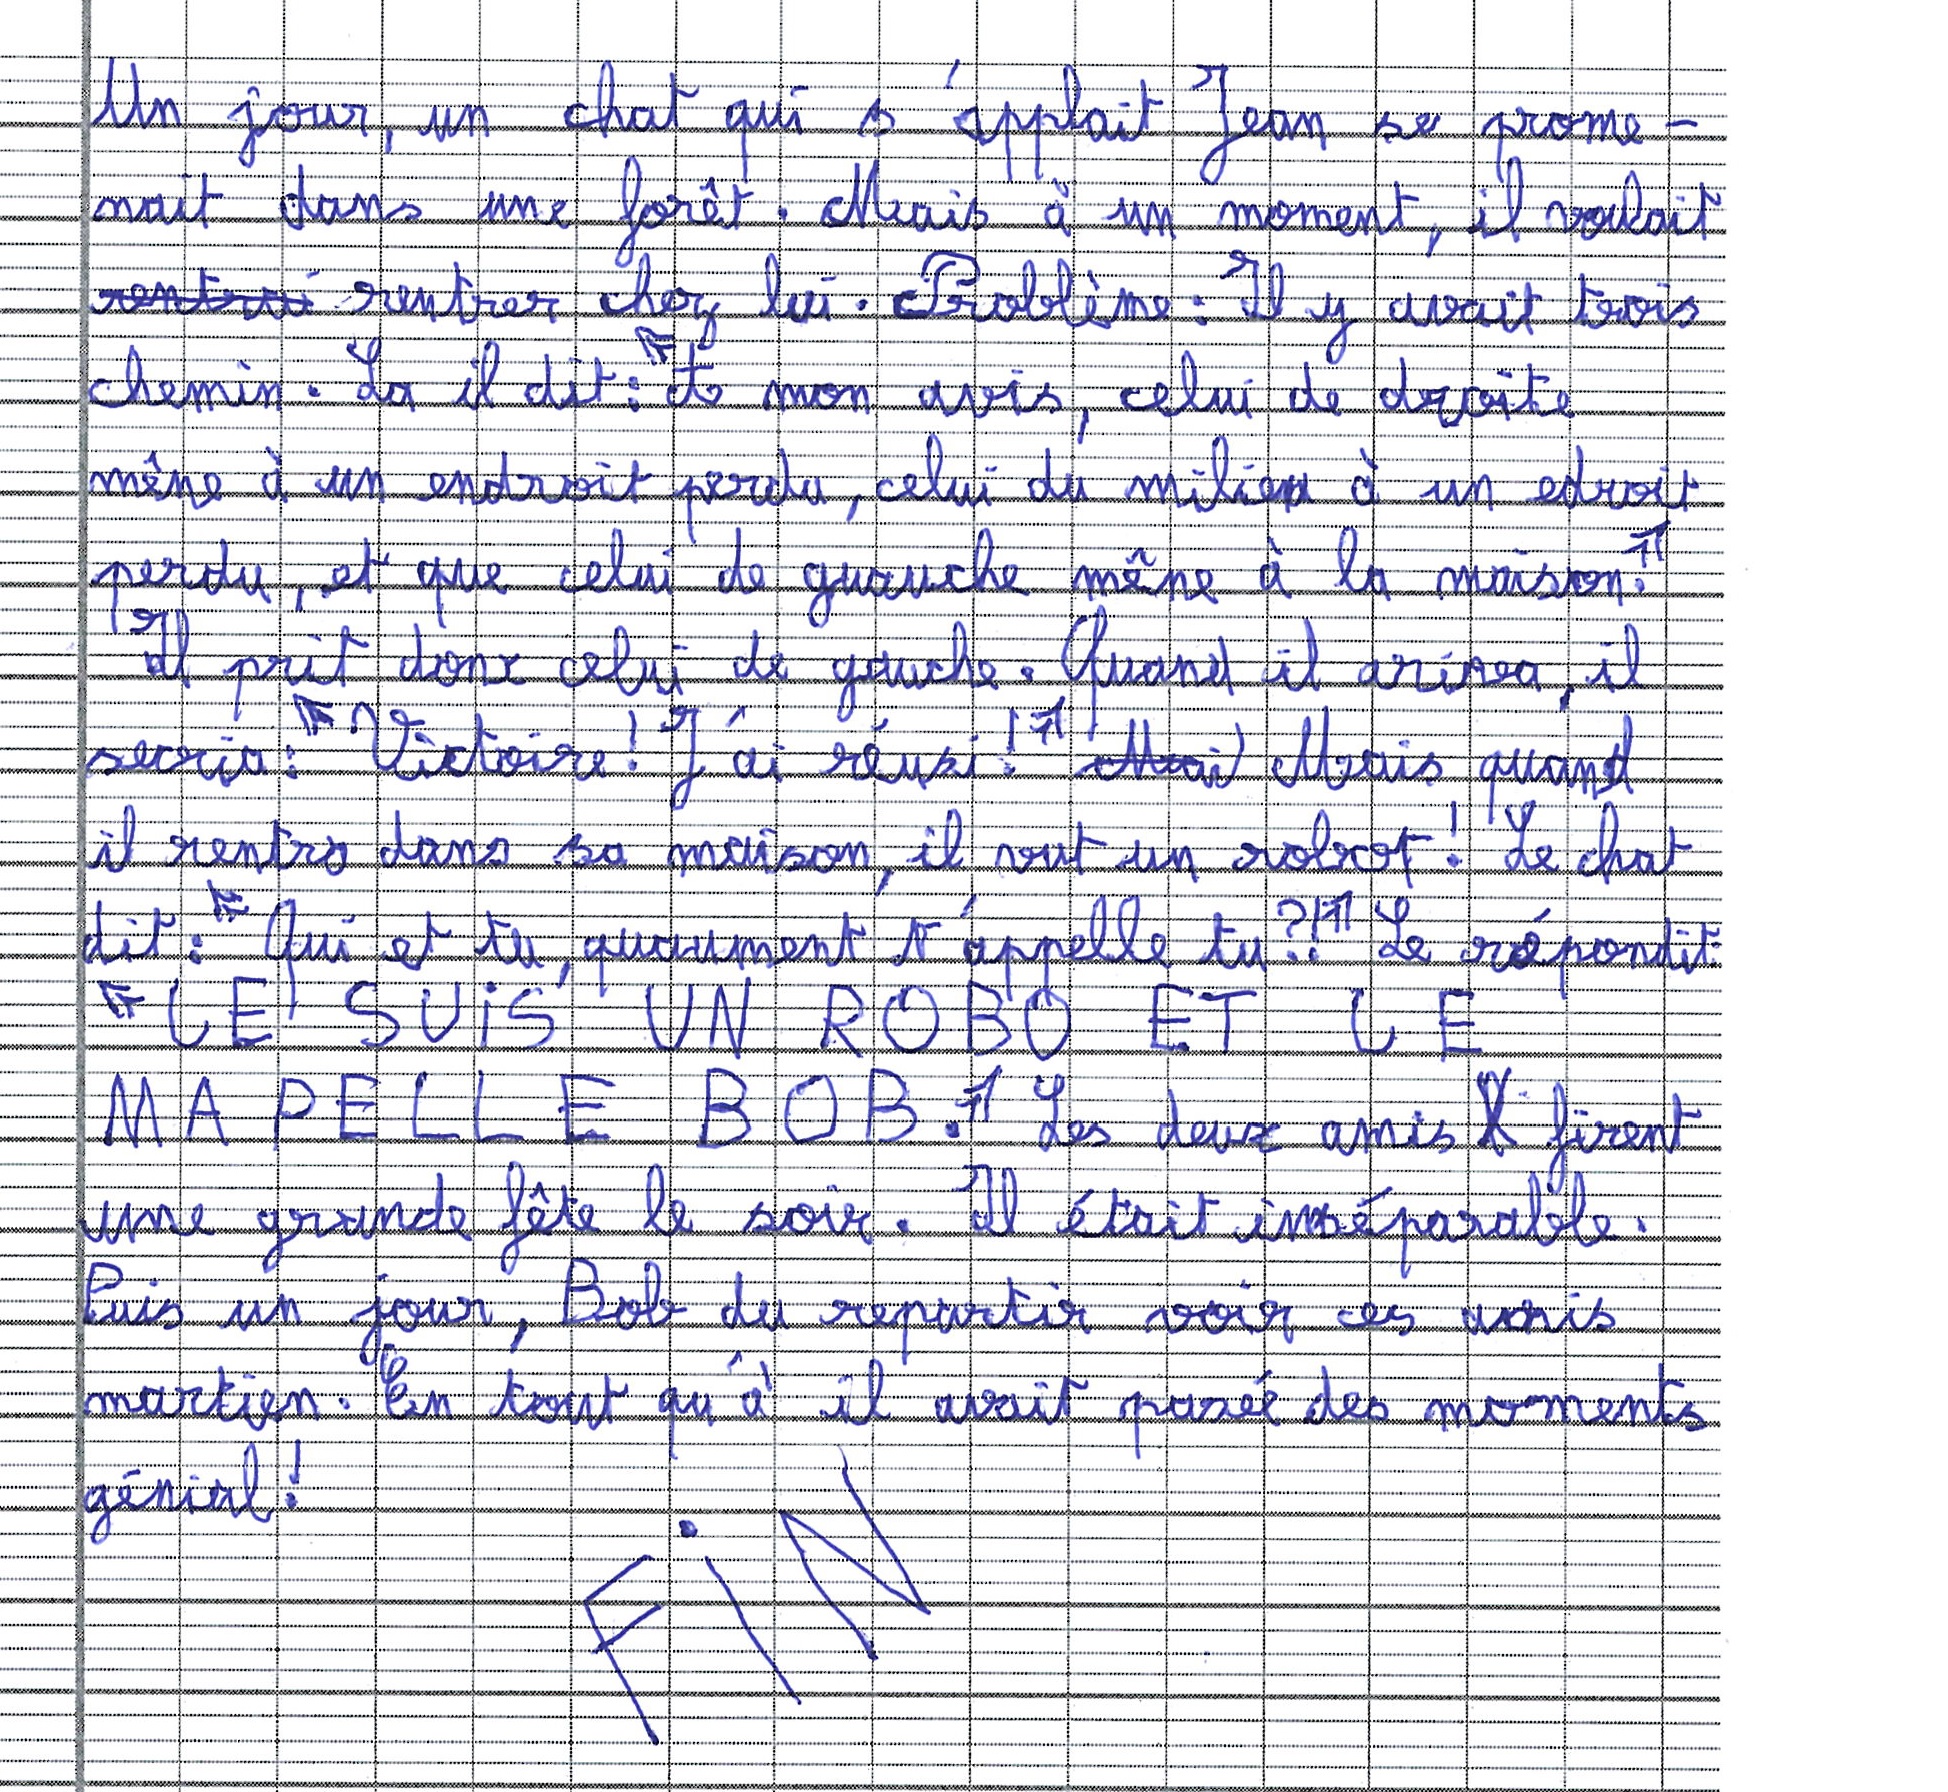 Un jour, un chat qui s'applait Jean se prome-
nait dans une forêt. Mais à un moment, il voulait
rentrai rentrer chez lui. Problème : Il y avait trois
chemin. La il dit : "A mon avis, celui de droite
mêne à un endroit perdu, celui du milieu à un edroit
perdu, et que celui de guauche mêne à la maison."
Il prit donc celui de gauche. Quand il ariva, il
secria : "Victoire ! J'ai réusi !" Mai Mais quand
il rentra dans sa maison, il vut un robot ! Le chat
dit : "Qui et tu, quaument t'appelle tu ?!" Le répondit :
"JE SUiS UN ROBO ET JE
MAPELLE BOB." Les deux amis firent
une grande fête le soir. Il était inséparable.
Puis un jour, Bob du repartir voir ces amis
martien. En tout qu'à il avait passé des moments
génial !
FiN